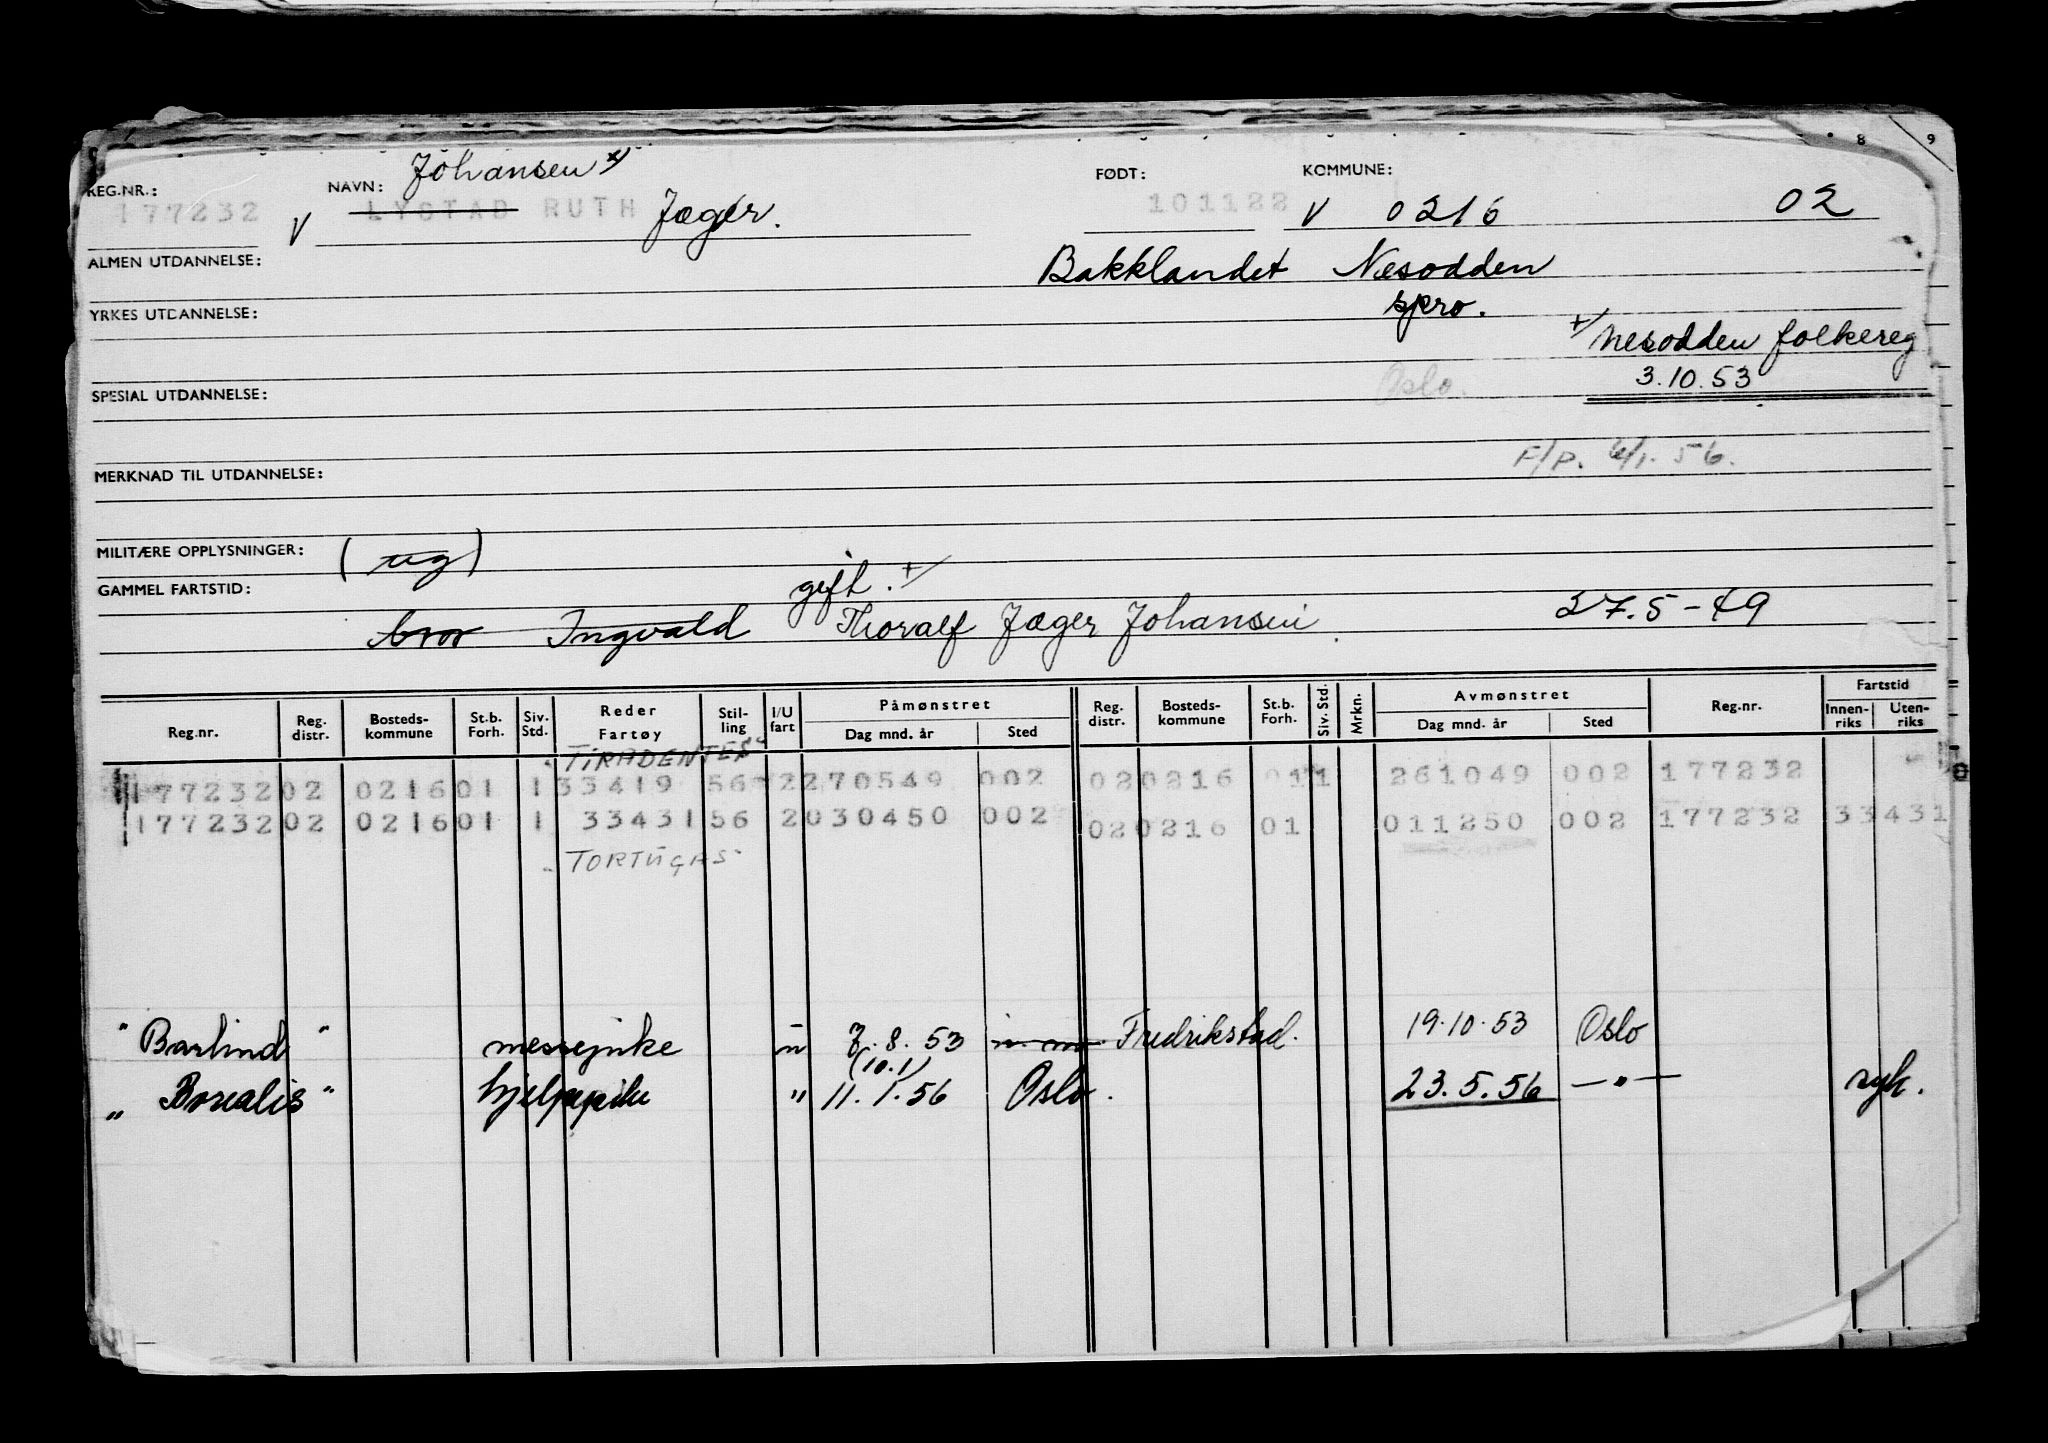 8 9
REG.NR.: NAVN: Johansen x) FØDT: KOMMUNE:
177232 V LYSTAD RUTH Jæger. 101122 V 0216 02
ALMEN UTDANNELSE: Bakklandet Nesodden
YRKES UTDANNELSE: spro.
+/ Nesodden folkereg
Oslo. 3.10.53
SPESIAL UTDANNELSE:
F/P. 6/1. 56.
MERKNAD TIL UTDANNELSE:
MILITÆRE OPPLYSNINGER: (ug)
GAMMEL FARTSTID: gift. +/
bror Ingvald Thoralf Jæger Johansen 27.5-49
Reg.nr. Reg. distr. Bosteds-kommune St.b. Forh. Siv. Std. Reder Fartøy Stil-ling I/U fart Påmønstret Dag mnd. år Sted Reg. distr. Bosteds-kommune St.b. Forh. Siv. Std. Mrkn. Avmønstret Dag mnd. år Sted Reg.nr. Fartstid Innen-riks Uten-riks
"TIRADENTES"
177232 02 0216 01 1 33419 56 2 270549 002 02 0216 01 1 261049 002 177232
177232 02 0216 01 1 33431 56 2 030450 002 02 0216 01 011250 002 177232 33431
"TORTUGAS"
"Barlind" messepike u 3.8.53 Fredrikstad. 19.10.53 Oslo
(10.1)
"Borealis" hjelpepike " 11.1.56 Oslo. 23.5.56 —"— syk.